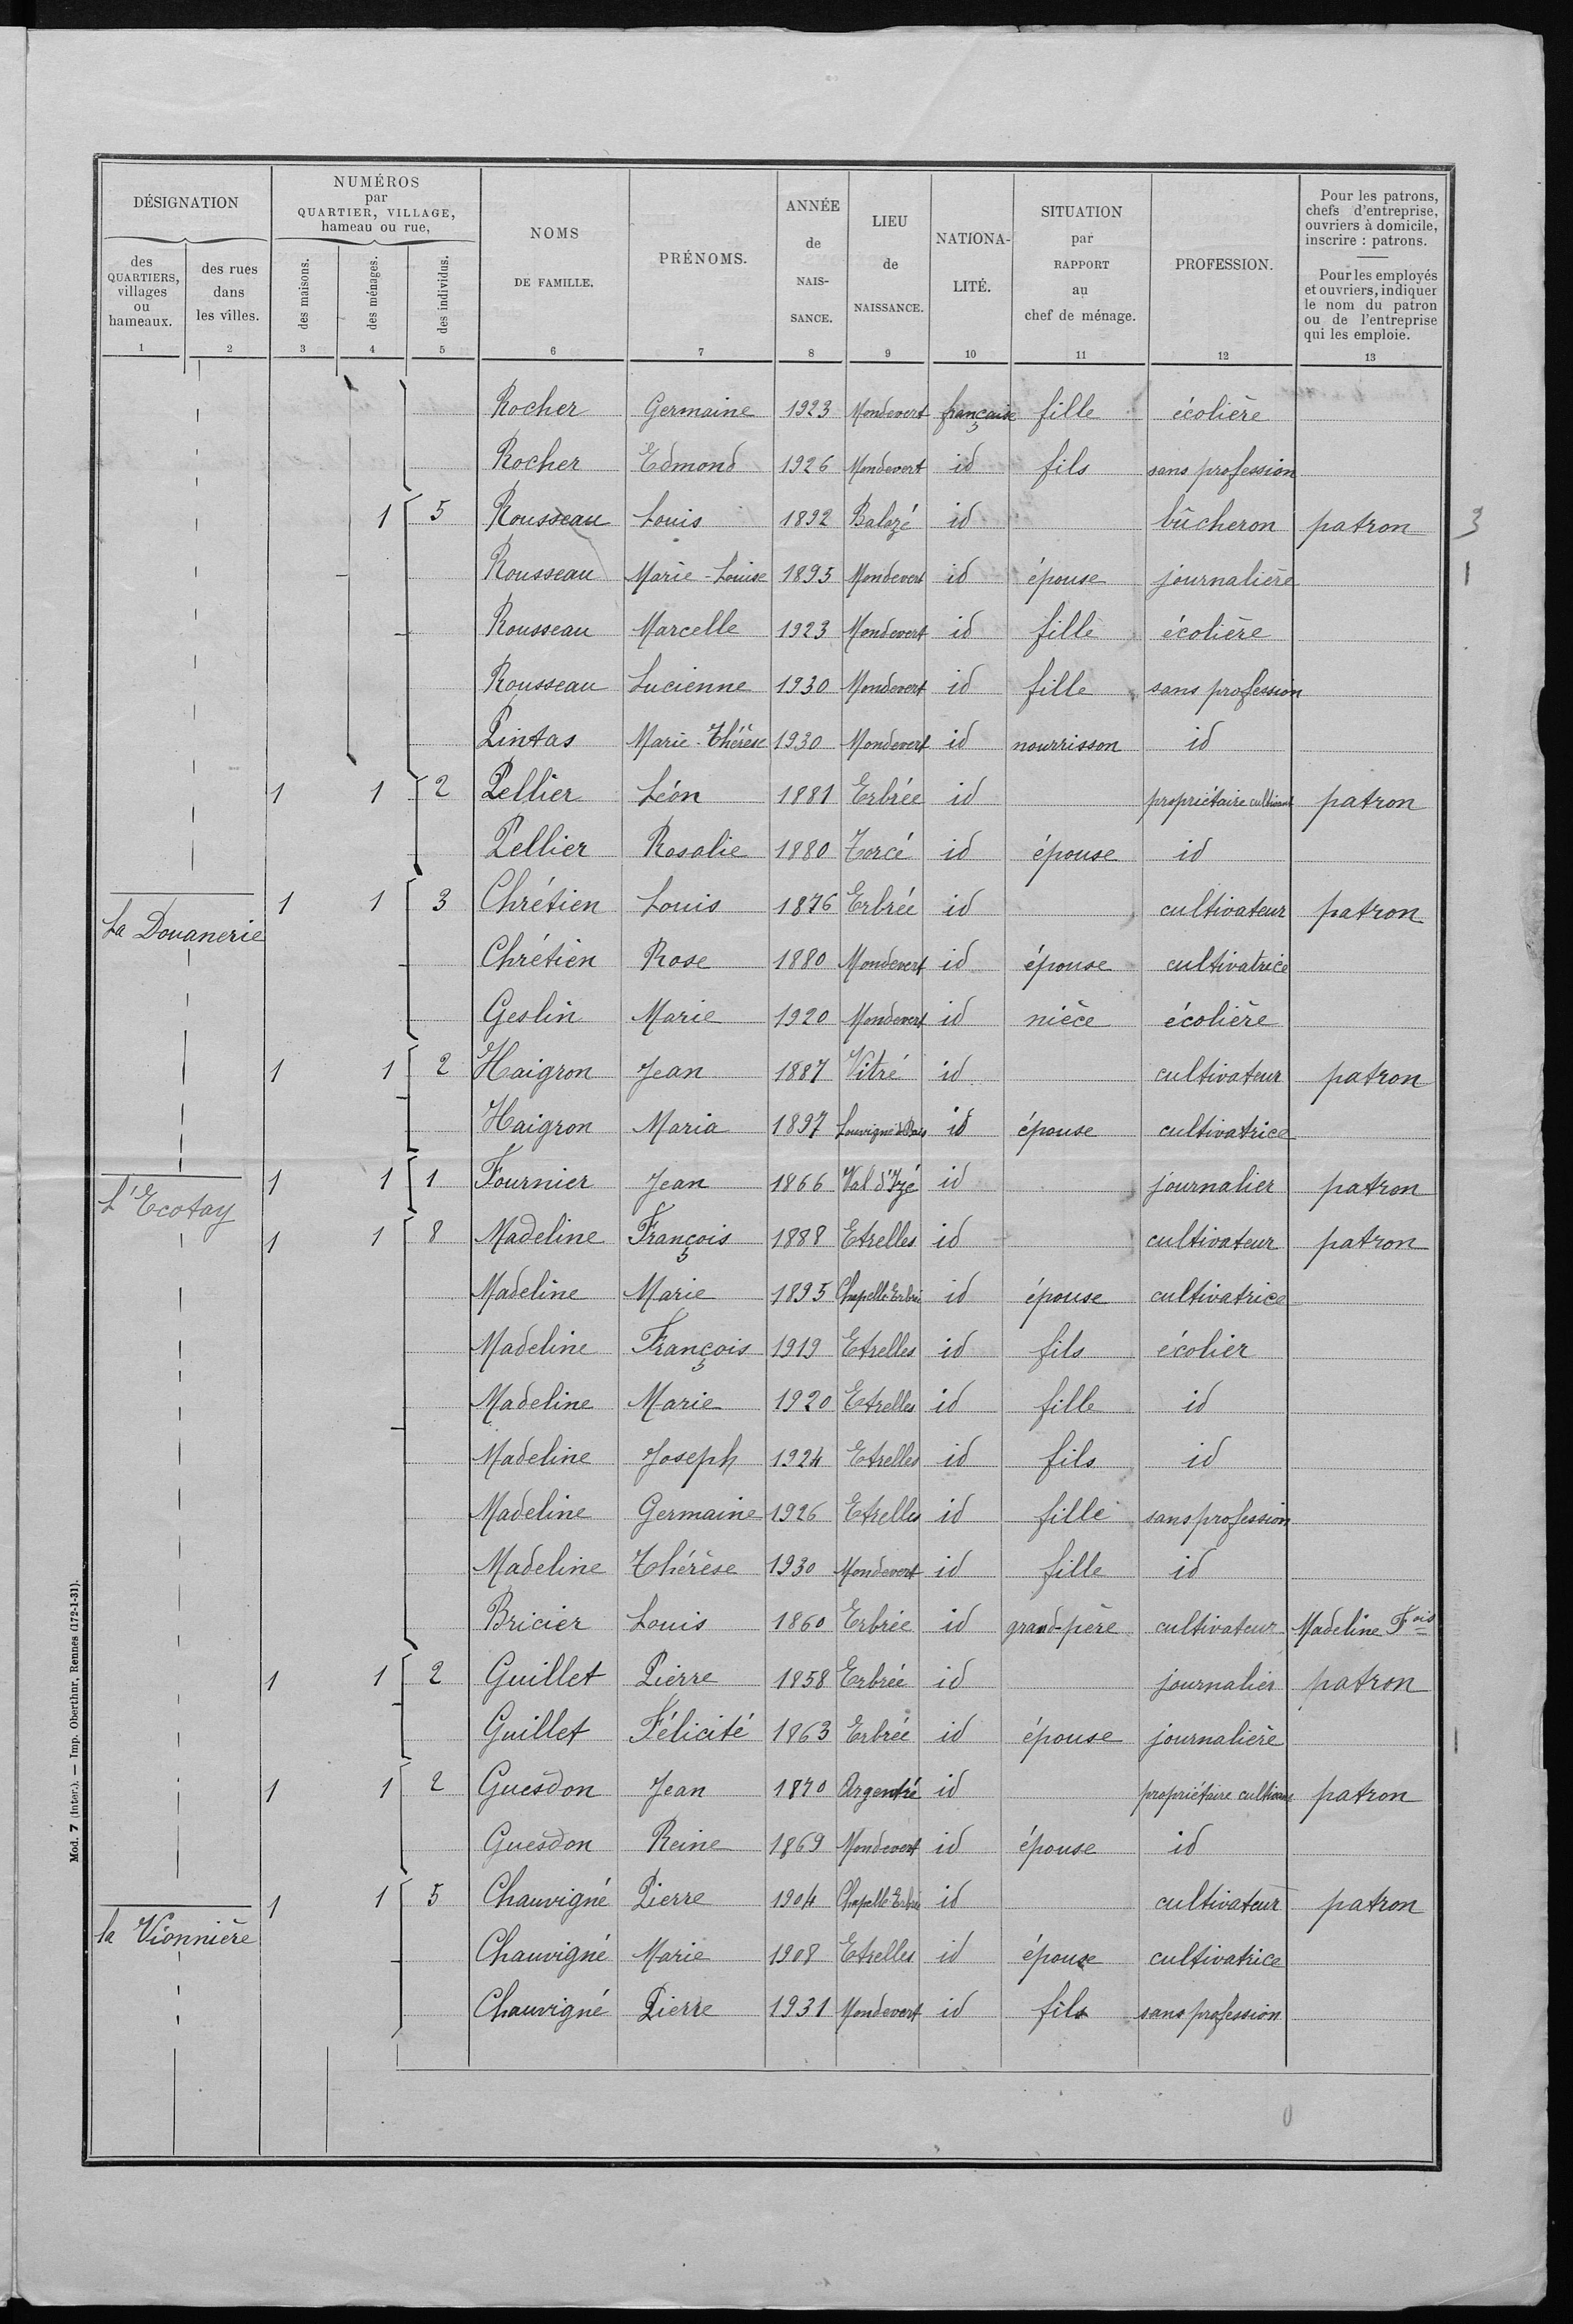 DÉSIGNATION
des QUARTIERS, villages ou hameaux.
des rues dans les villes.
NUMÉROS par QUARTIER, VILLAGE, hameau ou rue,
des maisons.
des ménages.
des individus.
NOMS DE FAMILLE.
PRÉNOMS.
ANNÉE de NAIS-SANCE.
LIEU de NAISSANCE.
NATIONA-LITÉ.
SITUATION par RAPPORT au chef de ménage.
PROFESSION.
Pour les patrons, chefs d'entreprise, ouvriers à domicile, inscrire : patrons.
Pour les employés et ouvriers, indiquer le nom du patron ou de l'entreprise qui les emploie.
1 2 3 4 5 6 7 8 9 10 11 12 13
Rocher Germaine 1923 Mondevert française fille écolière
Rocher Edmond 1926 Mondevert id fils sans profession
1 5 Rousseau Louis 1892 Balazé id bûcheron patron 3
Rousseau Marie-Louise 1895 Mondevert id épouse journalière 1
Rousseau Marcelle 1923 Mondevert id fille écolière
Rousseau Lucienne 1930 Mondevert id fille sans profession
Pintas Marie-Thérèse 1930 Mondevert id nourrisson id
1 1 2 Pellier Léon 1881 Erbrée id propriétaire cultivant patron
Pellier Rosalie 1880 Torcé id épouse id
La Douanerie 1 1 3 Chrétien Louis 1876 Erbrée id cultivateur patron
Chrétien Rose 1880 Mondevert id épouse cultivatrice
Geslin Marie 1920 Mondevert id nièce écolière
1 1 2 Haigron Jean 1887 Vitré id cultivateur patron
Haigron Maria 1897 Louvigné d Bais id épouse cultivatrice
L'Ecotay 1 1 1 Fournier Jean 1866 Val d'Izé id journalier patron
1 1 8 Madeline François 1888 Etrelles id cultivateur patron
Madeline Marie 1895 Chapelle Erbrée id épouse cultivatrice
Madeline François 1919 Etrelles id fils écolier
Madeline Marie 1920 Etrelles id fille id
Madeline Joseph 1924 Etrelles id fils id
Madeline Germaine 1926 Etrelles id fille sans profession
Madeline Thérèse 1930 Mondevert id fille id
Bricier Louis 1860 Erbrée id grand-père cultivateur Madeline Fois
1 1 2 Guillet Pierre 1858 Erbrée id journalier patron
Guillet Félicité 1863 Erbrée id épouse journalière 1
1 1 2 Guesdon Jean 1870 Argentré id propriétaire cultivant patron
Guesdon Reine 1869 Mondevert id épouse id
la Vionnière 1 1 5 Chauvigné Pierre 1904 Chapelle Erbrée id cultivateur patron
Chauvigné Marie 1908 Etrelles id épouse cultivatrice
Chauvigné Pierre 1931 Mondevert id fils sans profession
Mod. 7 (inter.). — Imp. Oberthur, Rennes (172-1-31).